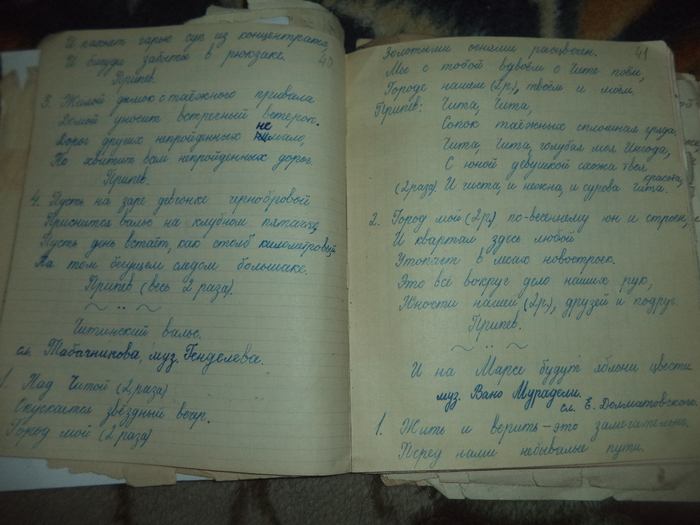 И пахнет гарью суп из концентрата,
И блюдц забыты в рюкзаке.
40
Припев
3. Жилой дымок с таёжного привала
Домой уносит встречный ветерок.
Дорог других непройденных не мало,
Но хватит вам непройденных дорог.
Припев.
4. Пусть на заре девчонке чернобровой
Приснится вальс на клубном пятачке,
Пусть день встаёт, как столб километровый,
На том бегущем следом большаке.
Припев (весь 2 раза).
~ .. ~
Читинский вальс.
сл. Табачникова, муз. Генделева.
1. Над Читой (2 раза)
Спускается звёздный вечер.
Город мой (2 раза)
Золотыми огнями расцвечен.
41
Мы с тобой вдвоём о Чите поём,
Городе нашем (2р.), твоём и моём.
Припев: Чита, Чита,
Сопок таёжных сплошная гряда,
Чита, Чита, голубая моя Ингода,
С юной девушкой схожа твоя краса,
(2 раза) И чиста, и нежна, и сурова Чита.
2. Город мой (2р.) по-весеннему юн и строен,
И квартал здесь любой
Утопает в лесах новостроек.
Это всё вокруг дело наших рук,
Юности нашей (2р.), друзей и подруг.
Припев.
~ .. ~
И на Марсе будут яблони цвести
муз. Вано Мурадели.
сл. Е. Долматовского.
1. Жить и верить – это замечательно.
Перед нами небывалые пути.